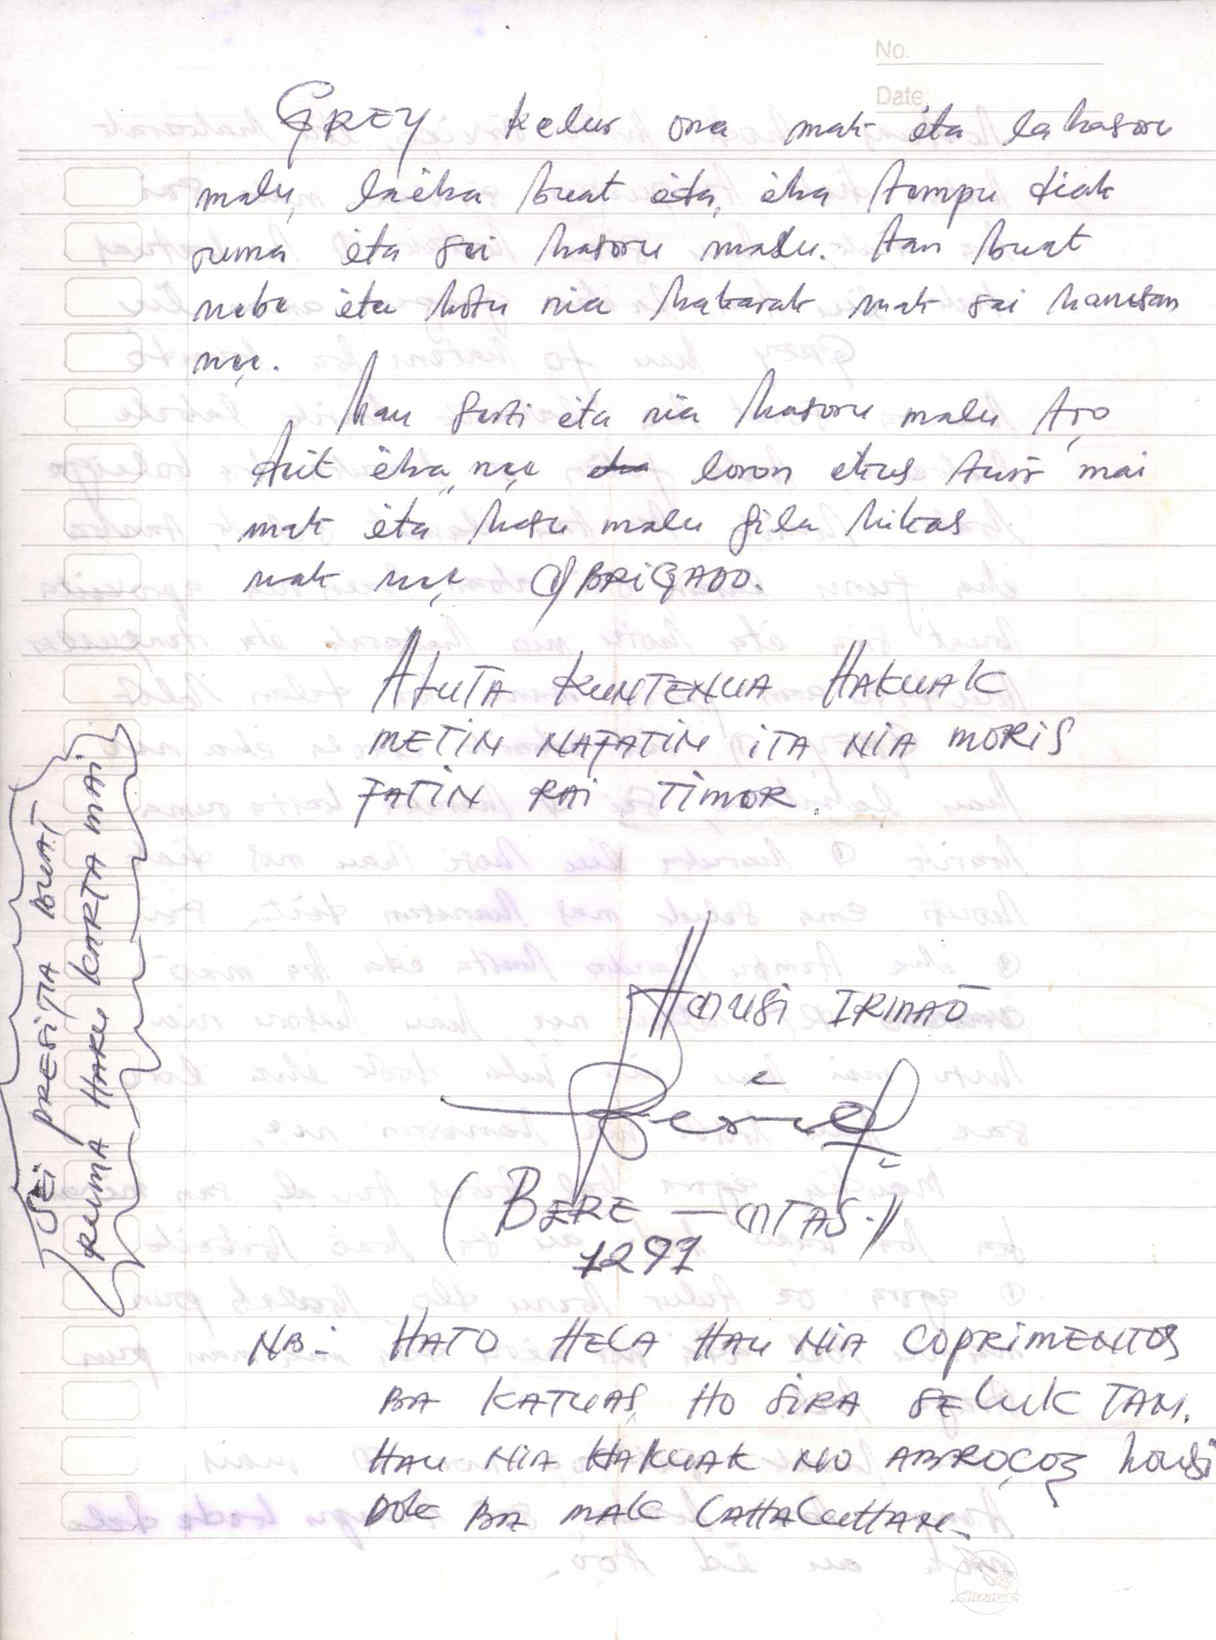 No.
Date
GREY kelur ona mak éta la hasoru
malu, laéha buat éta, éha tempu diak
ruma éta sei hasoru malu. tan buat
nebe éta hotu nia hakarak mak sei hanesan
nee.
hau senti éta nia hasoru malu to,o
tuit éha nee loron ikus tuir mai
mak éta hasu malu fila hikas
mak nee OBRIGADO.
ALUTA KUNTENUA HAKUAK
METIN NAFATIN ITA NIA MORIS
FATIN RAI TIMOR.
HOUSI IRMAÕ
(BERE - OTAS.)
1297
NB- HATO HELA HAU NIA COPRIMENTOS
BA KATUAS HO SIRA SELUK TAN.
HAU NIA HAKUAK NO ABROÇOS housi
DOK BA MAK LAHALUHAN-
SEI PRESIJA BUAT
RUMA HAKU KARTA MAI